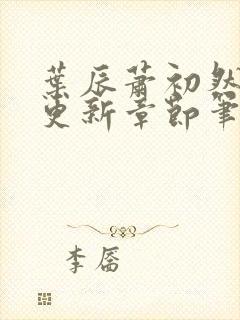 葉辰蕭初然
更新章節筆
李喬